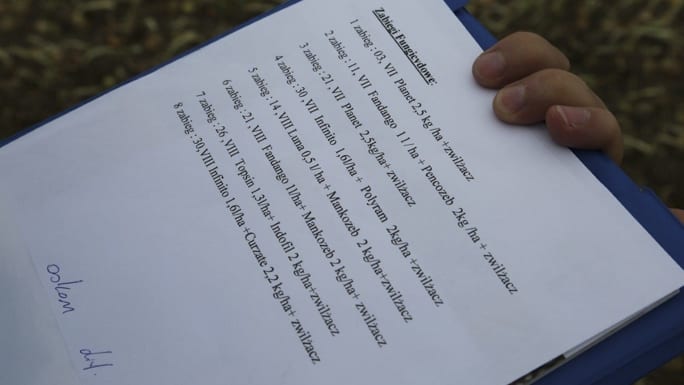 Zabiegi Fungicydowe:
1 zabieg : 03, VII Planet 2,5 kg /ha +zwilżacz
2 zabieg : 11, VII Fandango 1 l / ha + Pencozeb 2kg /ha + zwilżacz
3 zabieg : 21, VII Planet 2,5kg/ha+ zwilżacz
4 zabieg : 30, VII Infinito 1,6l/ha + Polyram 2kg/ha +zwilżacz
5 zabieg : 14, VIII Luna 0,5 l/ ha + Mankozeb 2 kg/ha+zwilżacz
6 zabieg : 21, VIII Fandango 1l/ha+ Mankozeb 2 kg/ha+ zwilżacz
7 zabieg : 26, VIII Topsin 1,3l/ha+ Indofil 2 kg/ha+zwilżacz
8 zabieg : 30,VIII Infinito 1,6l/ha +Curzate 2,2 kg/ha+ zwilżacz